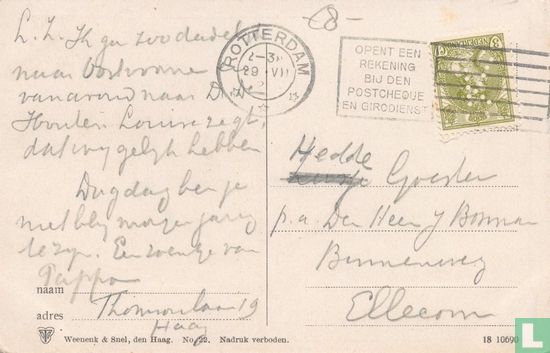 -8-
L. Z. Ik ga zoo dadelijk
naar
van avond naar D
Houten Louise zegt,
dat wij gelijk hebben
Dag dag ben je
niet blij morgen jarig
te zyn. Een zoentje van
Pappa
naam
adres Thomsonlaan 19
Haag
ROTTERDAM
29 VII
OPENT EEN
REKENING
BIJ DEN
POSTCHEQUE
EN GIRODIENST
NEDERLAND
Hedde
Goester
p. a. Den Heer J Bosman
Binnenweg
Ellecom
Weenenk & Snel, den Haag. No. 22. Nadruk verboden.
18 10690